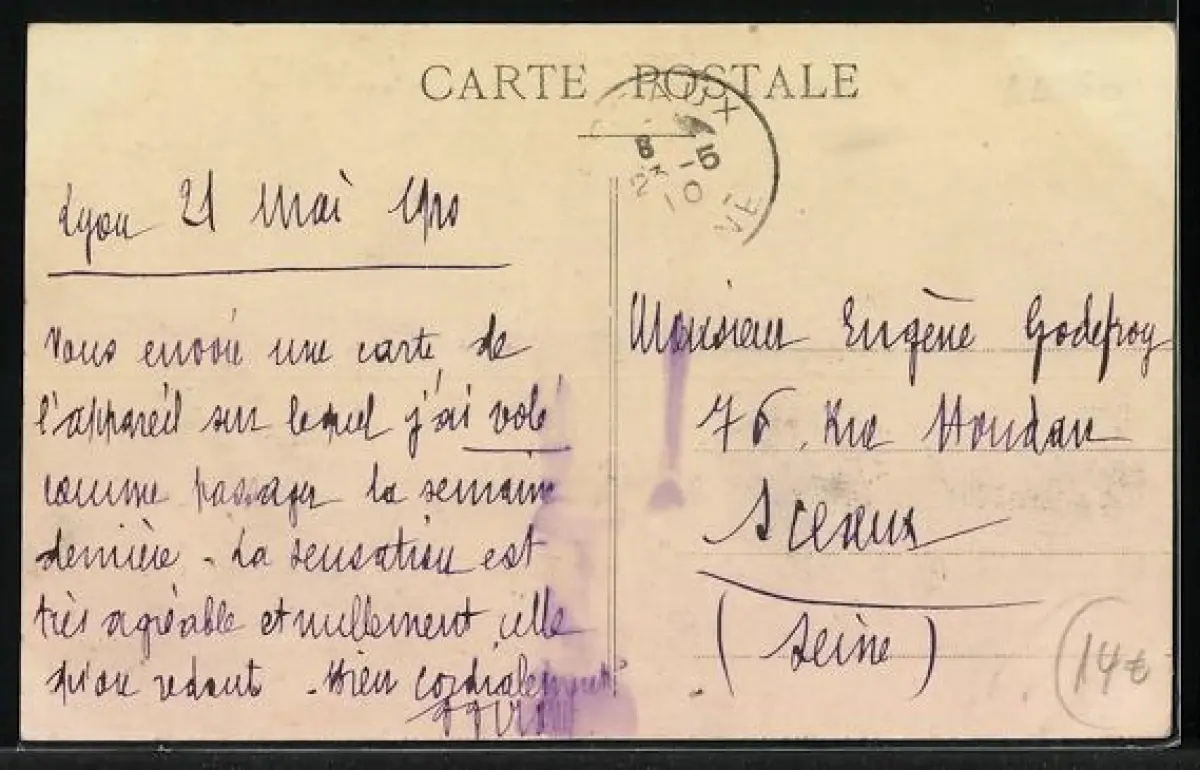 CARTE POSTALE
8
23 -5
10
Lyon 21 Mai 1910
Vous envoie une carte de
l'appareil sur lequel j'ai volé
comme passager la semaine
dernière - La sensation est
très agréable et nullement celle
qu'on redoute - Bien cordialement
Monsieur Eugène Godefroy
76, Rue Houdan
Sceaux
(Seine)
14€